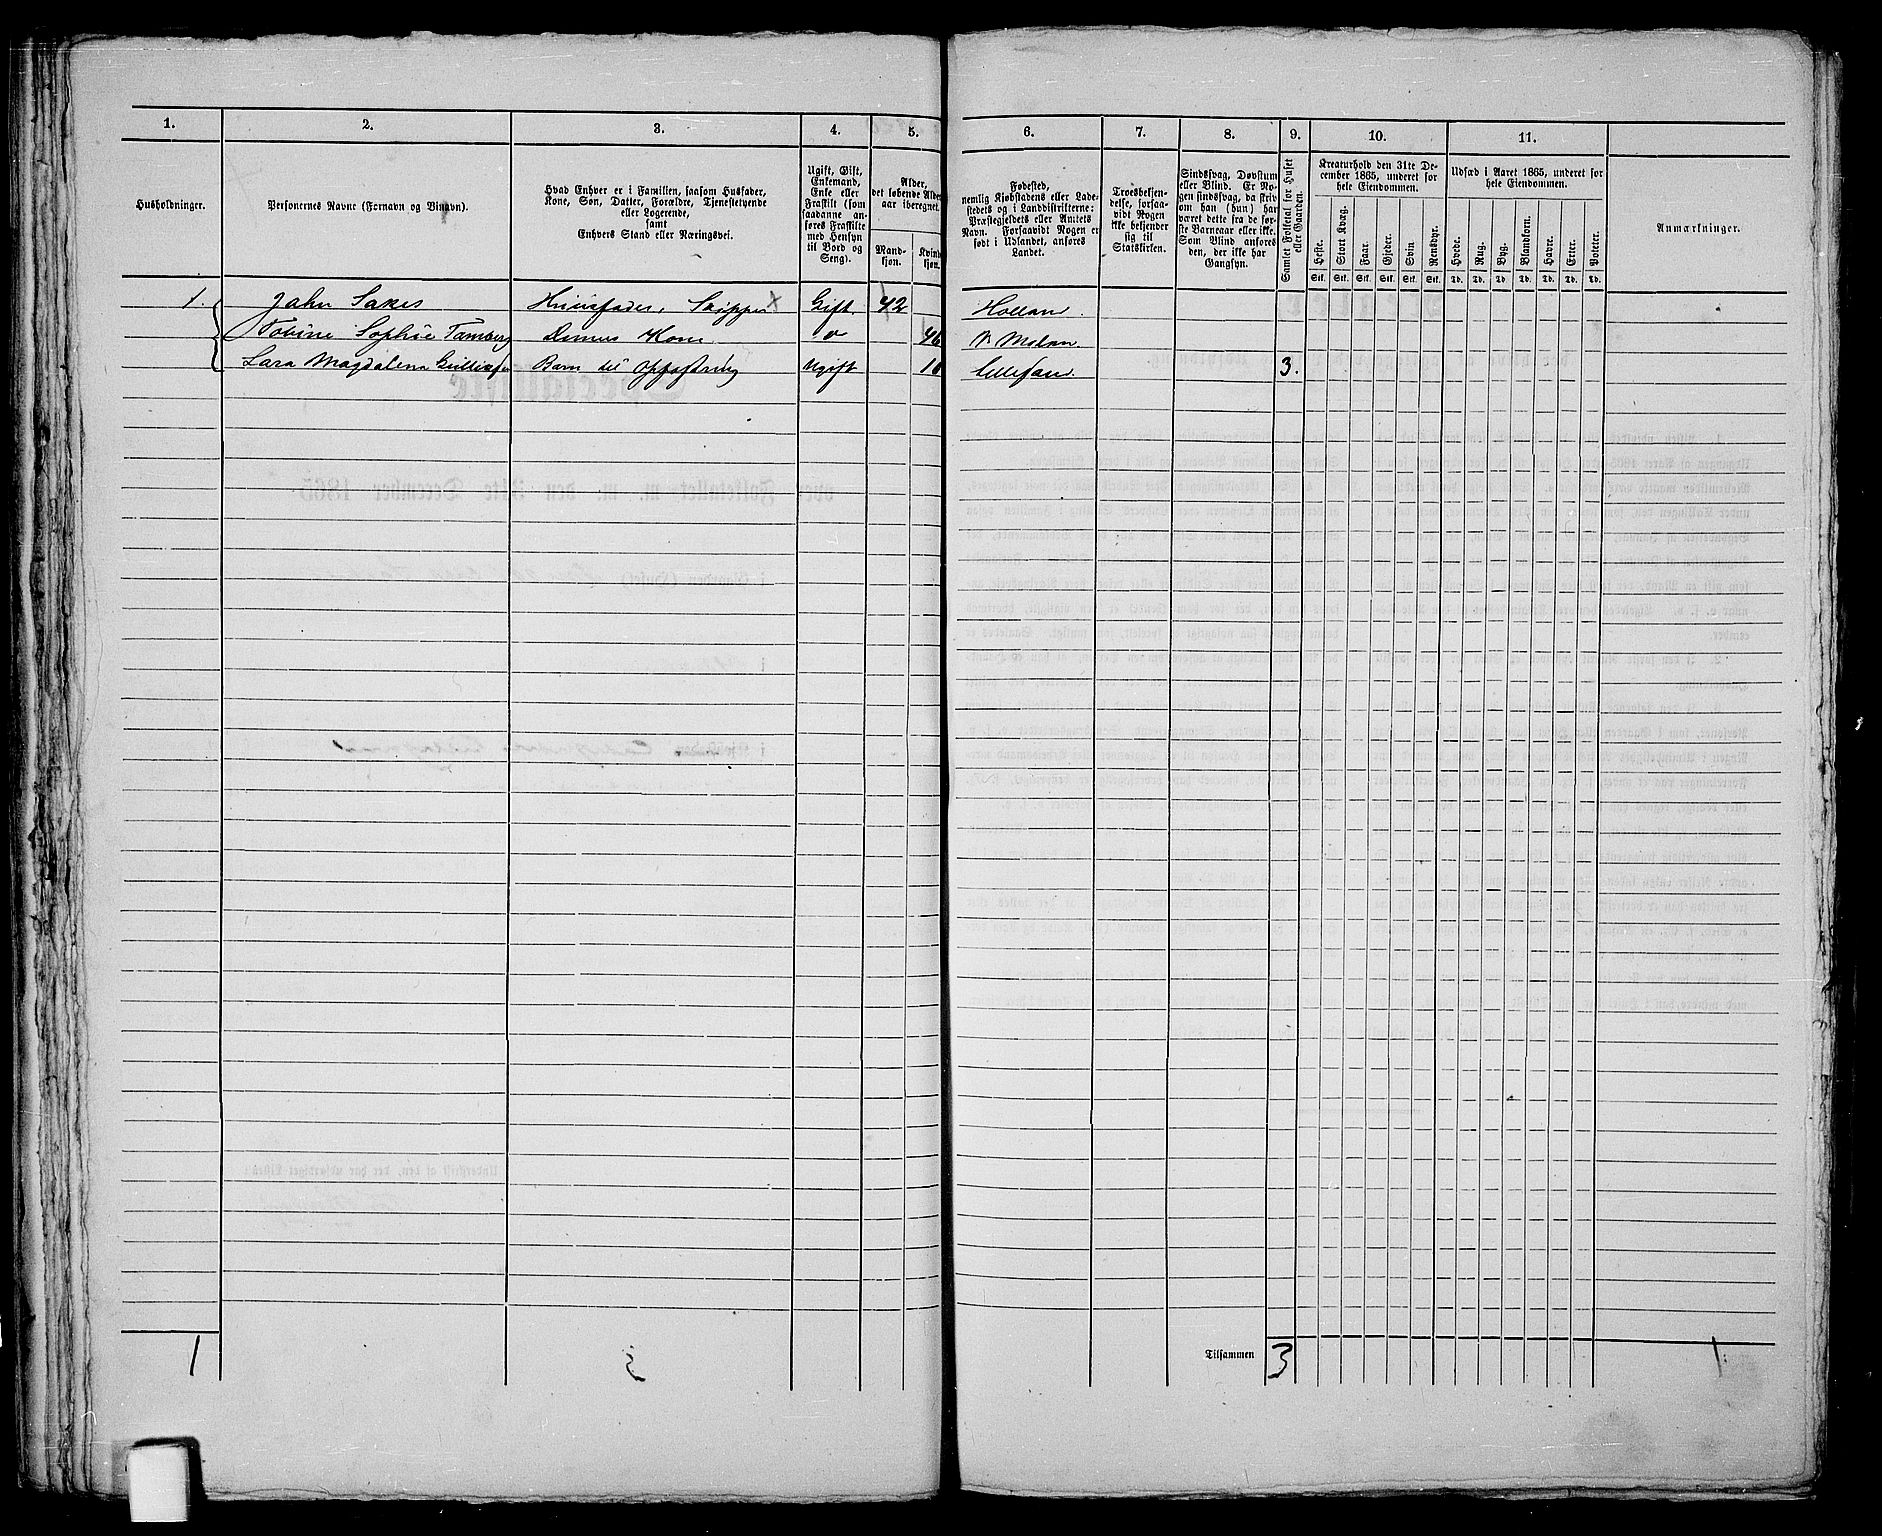 1. 2. 3. 4. 5. 6. 7. 8. 9. 10. 11.
Husholdninger.
Personernes Navne (Fornavn og Vinavn).
Hvad Enhver er i Familien, saasom Husfader,
Kone, Søn, Datter, Forældre, Tjenestetyende
eller Logerende,
samt
Enhvers Stand eller Næringsvei.
Ugift, Gift,
Enkemand,
Enke eller
Fraskilt (som
saadanne an-
føres Fraskilte
med Hensyn
til Bord og
Seng).
Alder,
det løbende Alders-
aar iberegnet.
Mand-
kjøn.
Kvinde-
kjøn.
Fødested,
nemlig Kjøbstadens eller Lade-
stedets og i Landdistrikterne:
Præstegjeldets eller Amtets
Navn. Forsaavidt Nogen er
født i Udlandet, anføres
Landet.
Troesbekjen-
delse, forsaa-
vidt Nogen
ikke bekjender
sig til
Statskirken.
Sindssvag, Døvstum
eller Blind. Er No-
gen sindssvag, da skriv
om han (hun) har
været dette fra de før-
ste Barneaar eller ikke.
Som Blind anføres
den, der ikke har
Gangsyn.
Samlet Folketal for Huset
eller Gaarden.
Kreaturhold den 31te De-
cember 1865, underet for
hele Eiendommen.
Heste. Stort Kvæg. Faar. Gjeder. Svin. Rensdyr.
Stk. Stk. Stk. Stk. Stk. Stk.
Udsæd i Aaret 1865, underet for
hele Eiendommen.
Hvede. Rug. Byg. Blandkorn. Havre. Erter. Poteter.
Td. Td. Td. Td. Td. Td. Td.
Anmærkninger.
1. John Sakes Huusfader, Skipper x Gift 42 Holland
Tobine Sophie Tamberg Dennes Kone " 46
Lara Magdalena Barn til Opfostring Ugift 10 Lillesand. 3.
1 3 Tilsammen 3 1